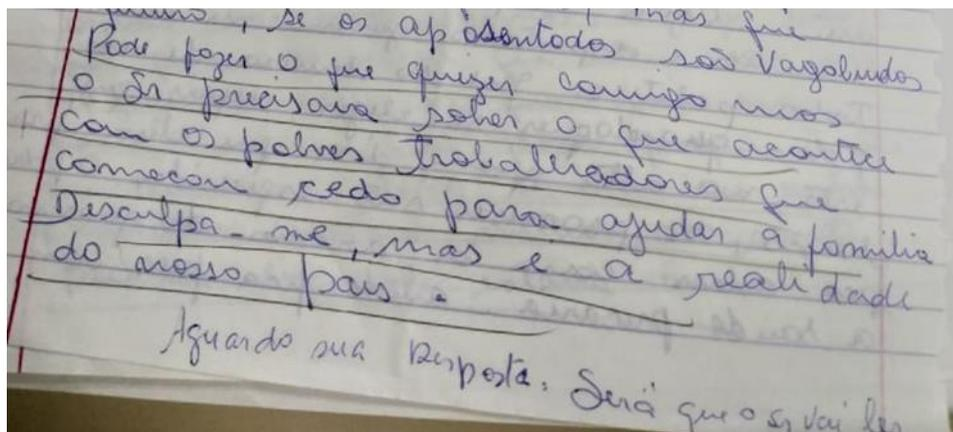 , se os aposentodos são Vagolundos
Pode fozer o que quizer comigo mos
o Sr precisava soher o que acontece
com os pobres Trobalhadores que
comecou cedo para ajudar a fomilia
Desculpa-me, mas e a realidade
do nosso pais.
Aguardo sua Resposta. Será que o sr vai ler